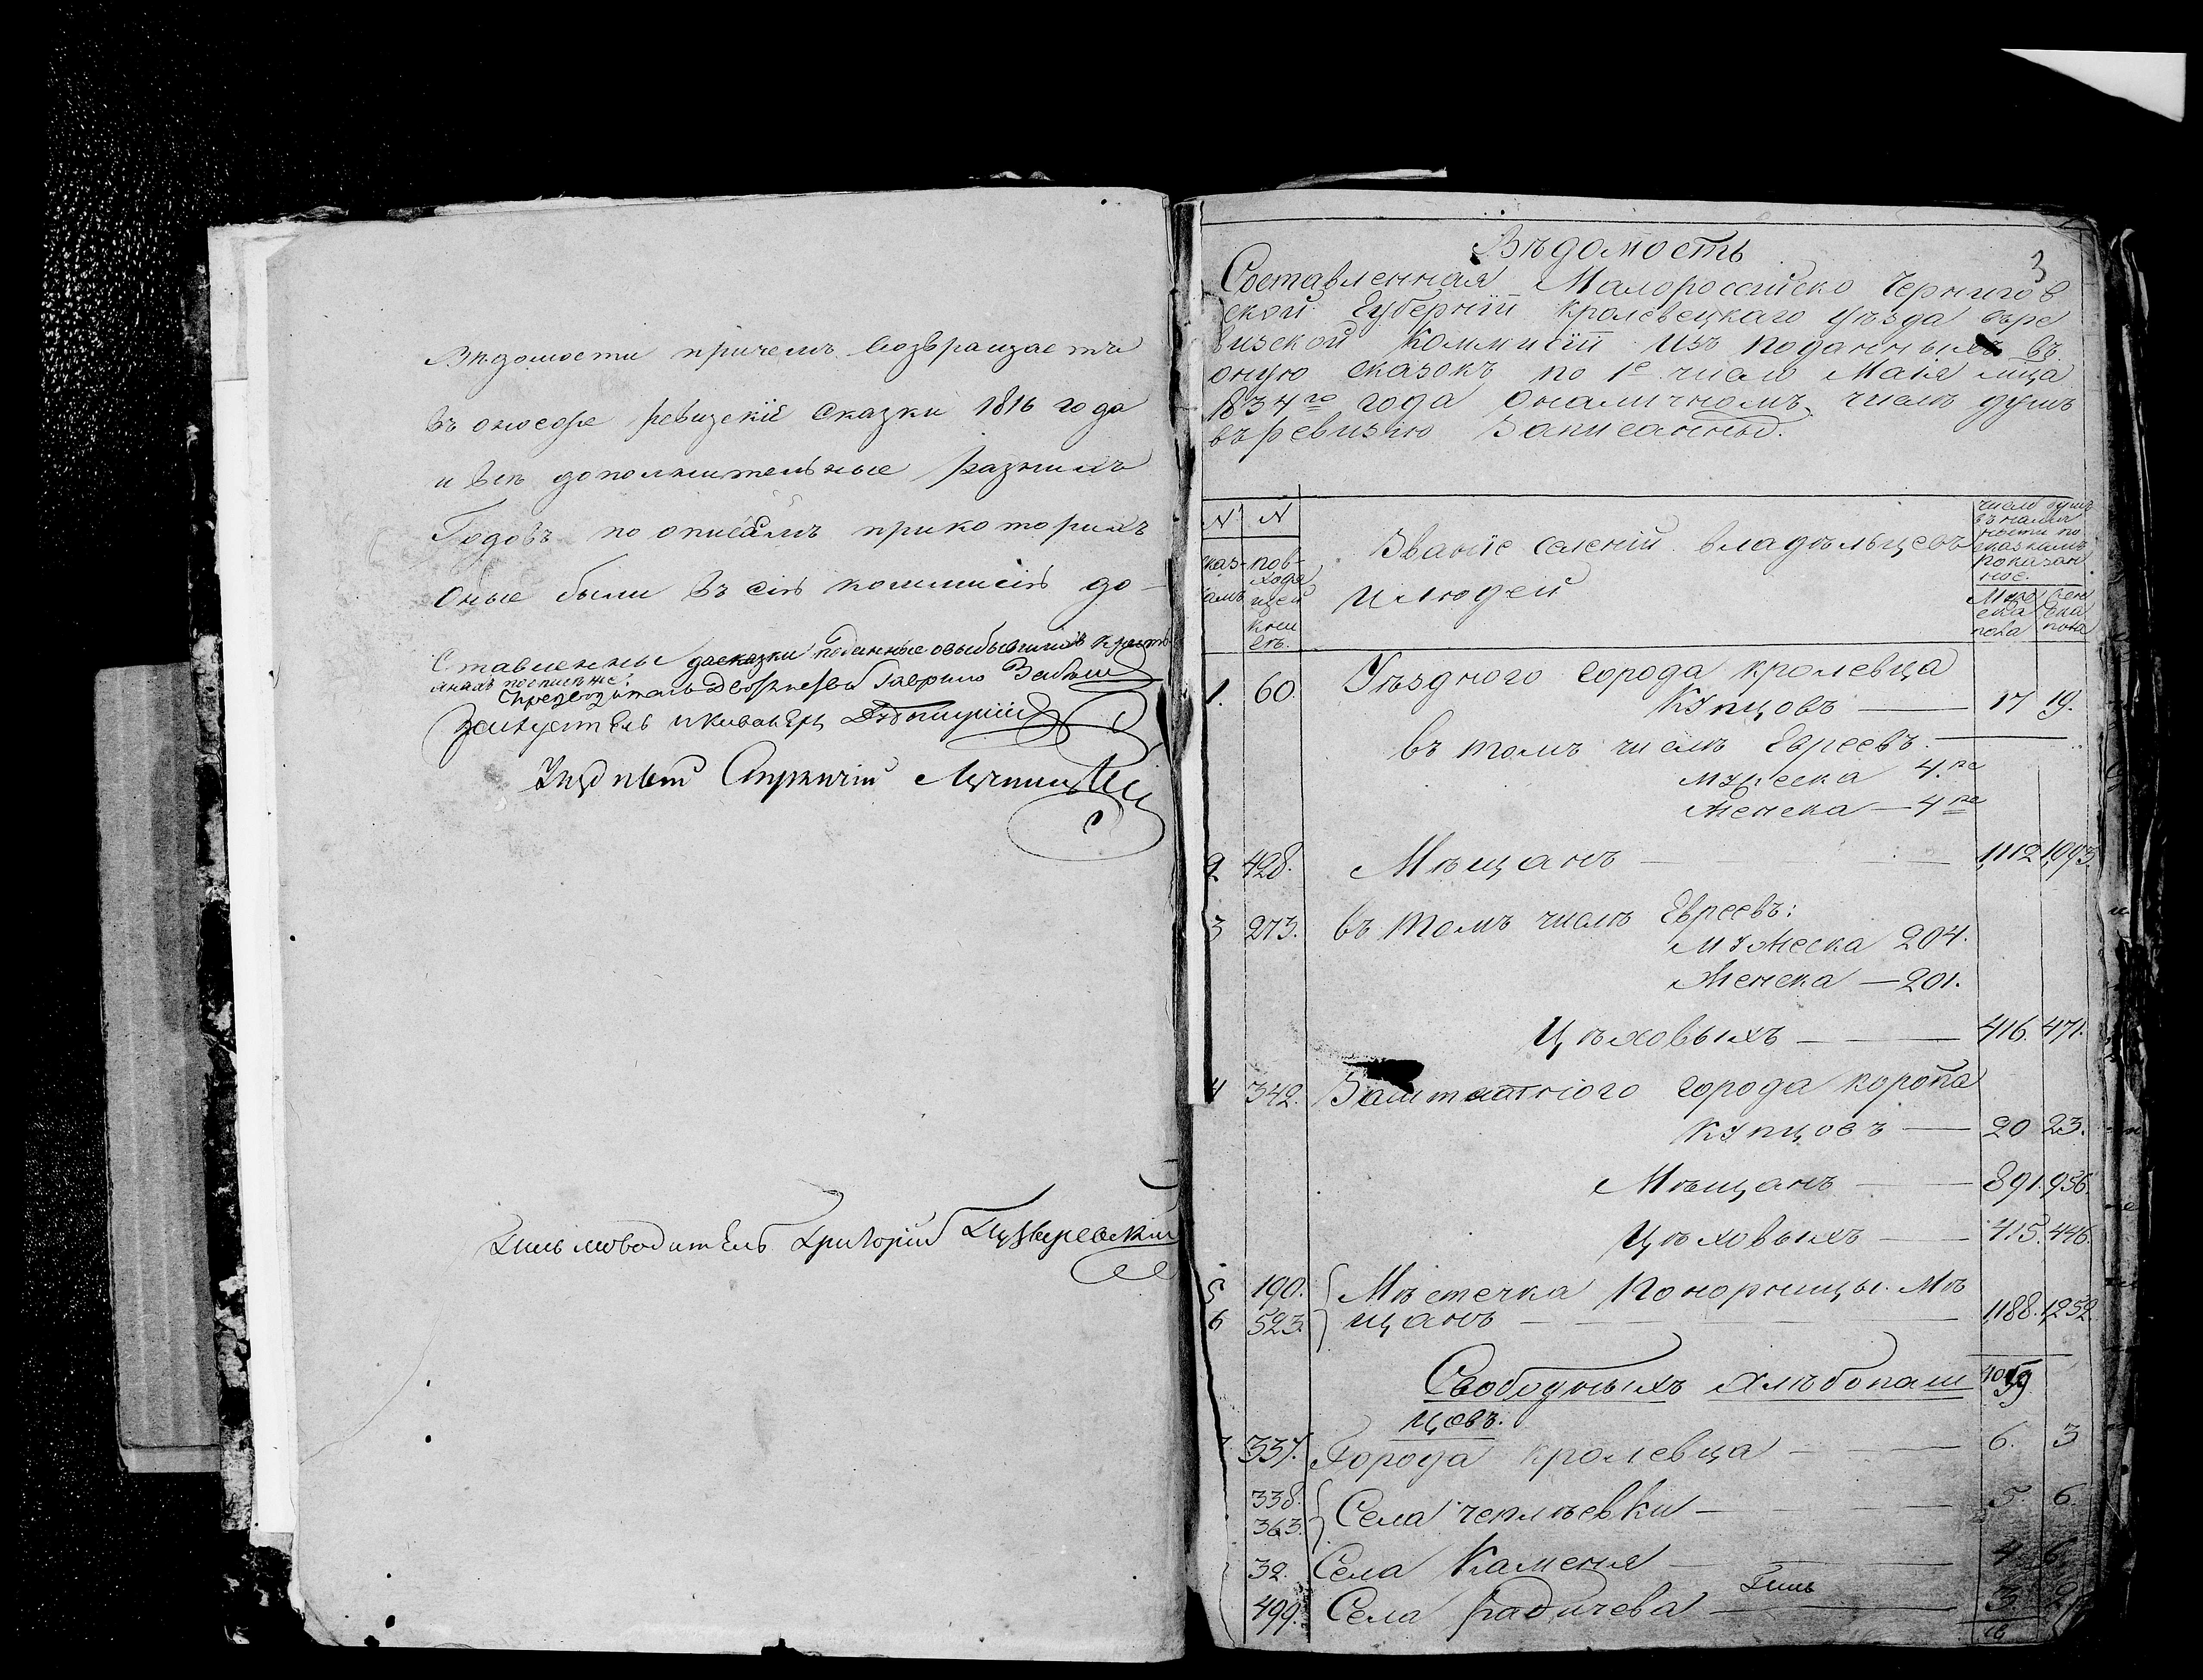 Вѣдомости причемъ возвращаетъ
въ оное ревизскіе сказки 1816 года
и всѣ дополнительные разныхъ
Годовъ по описямъ прикоторыхъ
Оные были въ сію коммисію до-
Ставленны поданные овыбывшихъ
Предводитель Дворянства Гаврило
Засѣдатель икавалеръ
Уѣздный Стряпчій
Письмоводитель Григорій
3
Вѣдомость
Составленная Малороссійско Чернигов
ской Губерніи Кролевецкаго Уѣзда въре
визской Коммисіи изъ поданныхъ въ
оную сказокъ по 1е число Маія мца
1834го года оналичномъ числѣ душъ
въревизію Записанныхъ.
N N
сказ-камъ повходящей книгѣ
Званіе селеній владѣльцевъ
илюдей
число душъ
въ налич
ности по
сказкамъ
показан
ное.
Муже женс
ска ска
пола пола
1. 60. Уѣзднаго города Кролевца
Купцовъ — 17 19.
въ томъ числѣ Евреевъ.
Мужеска 4.ре
Женска — 4ре
2. 428. Мѣщанъ — 1,112 1,093.
3 273. въ томъ числѣ Евреевъ:
Мужеска 204.
Женска — 201.
Цѣховыхъ — 416. 471.
4 342. Заштатного города Коропа
Купцовъ — 20 23.
Мѣщанъ — 891. 936.
Цѣховыхъ — 415. 446.
5 190. Мѣстечка Понорницы. Мѣ
6 523. щанъ — 1,188. 1,252.
Свободныхъ Хлѣбопаш
цовъ.
7 337. Города Кролевца — 6. 3
338. 363. Села Чеплѣевки — 5. 6.
32. Села Каменя — 4 6.
499. Села Радичева — 3. 2
Пись